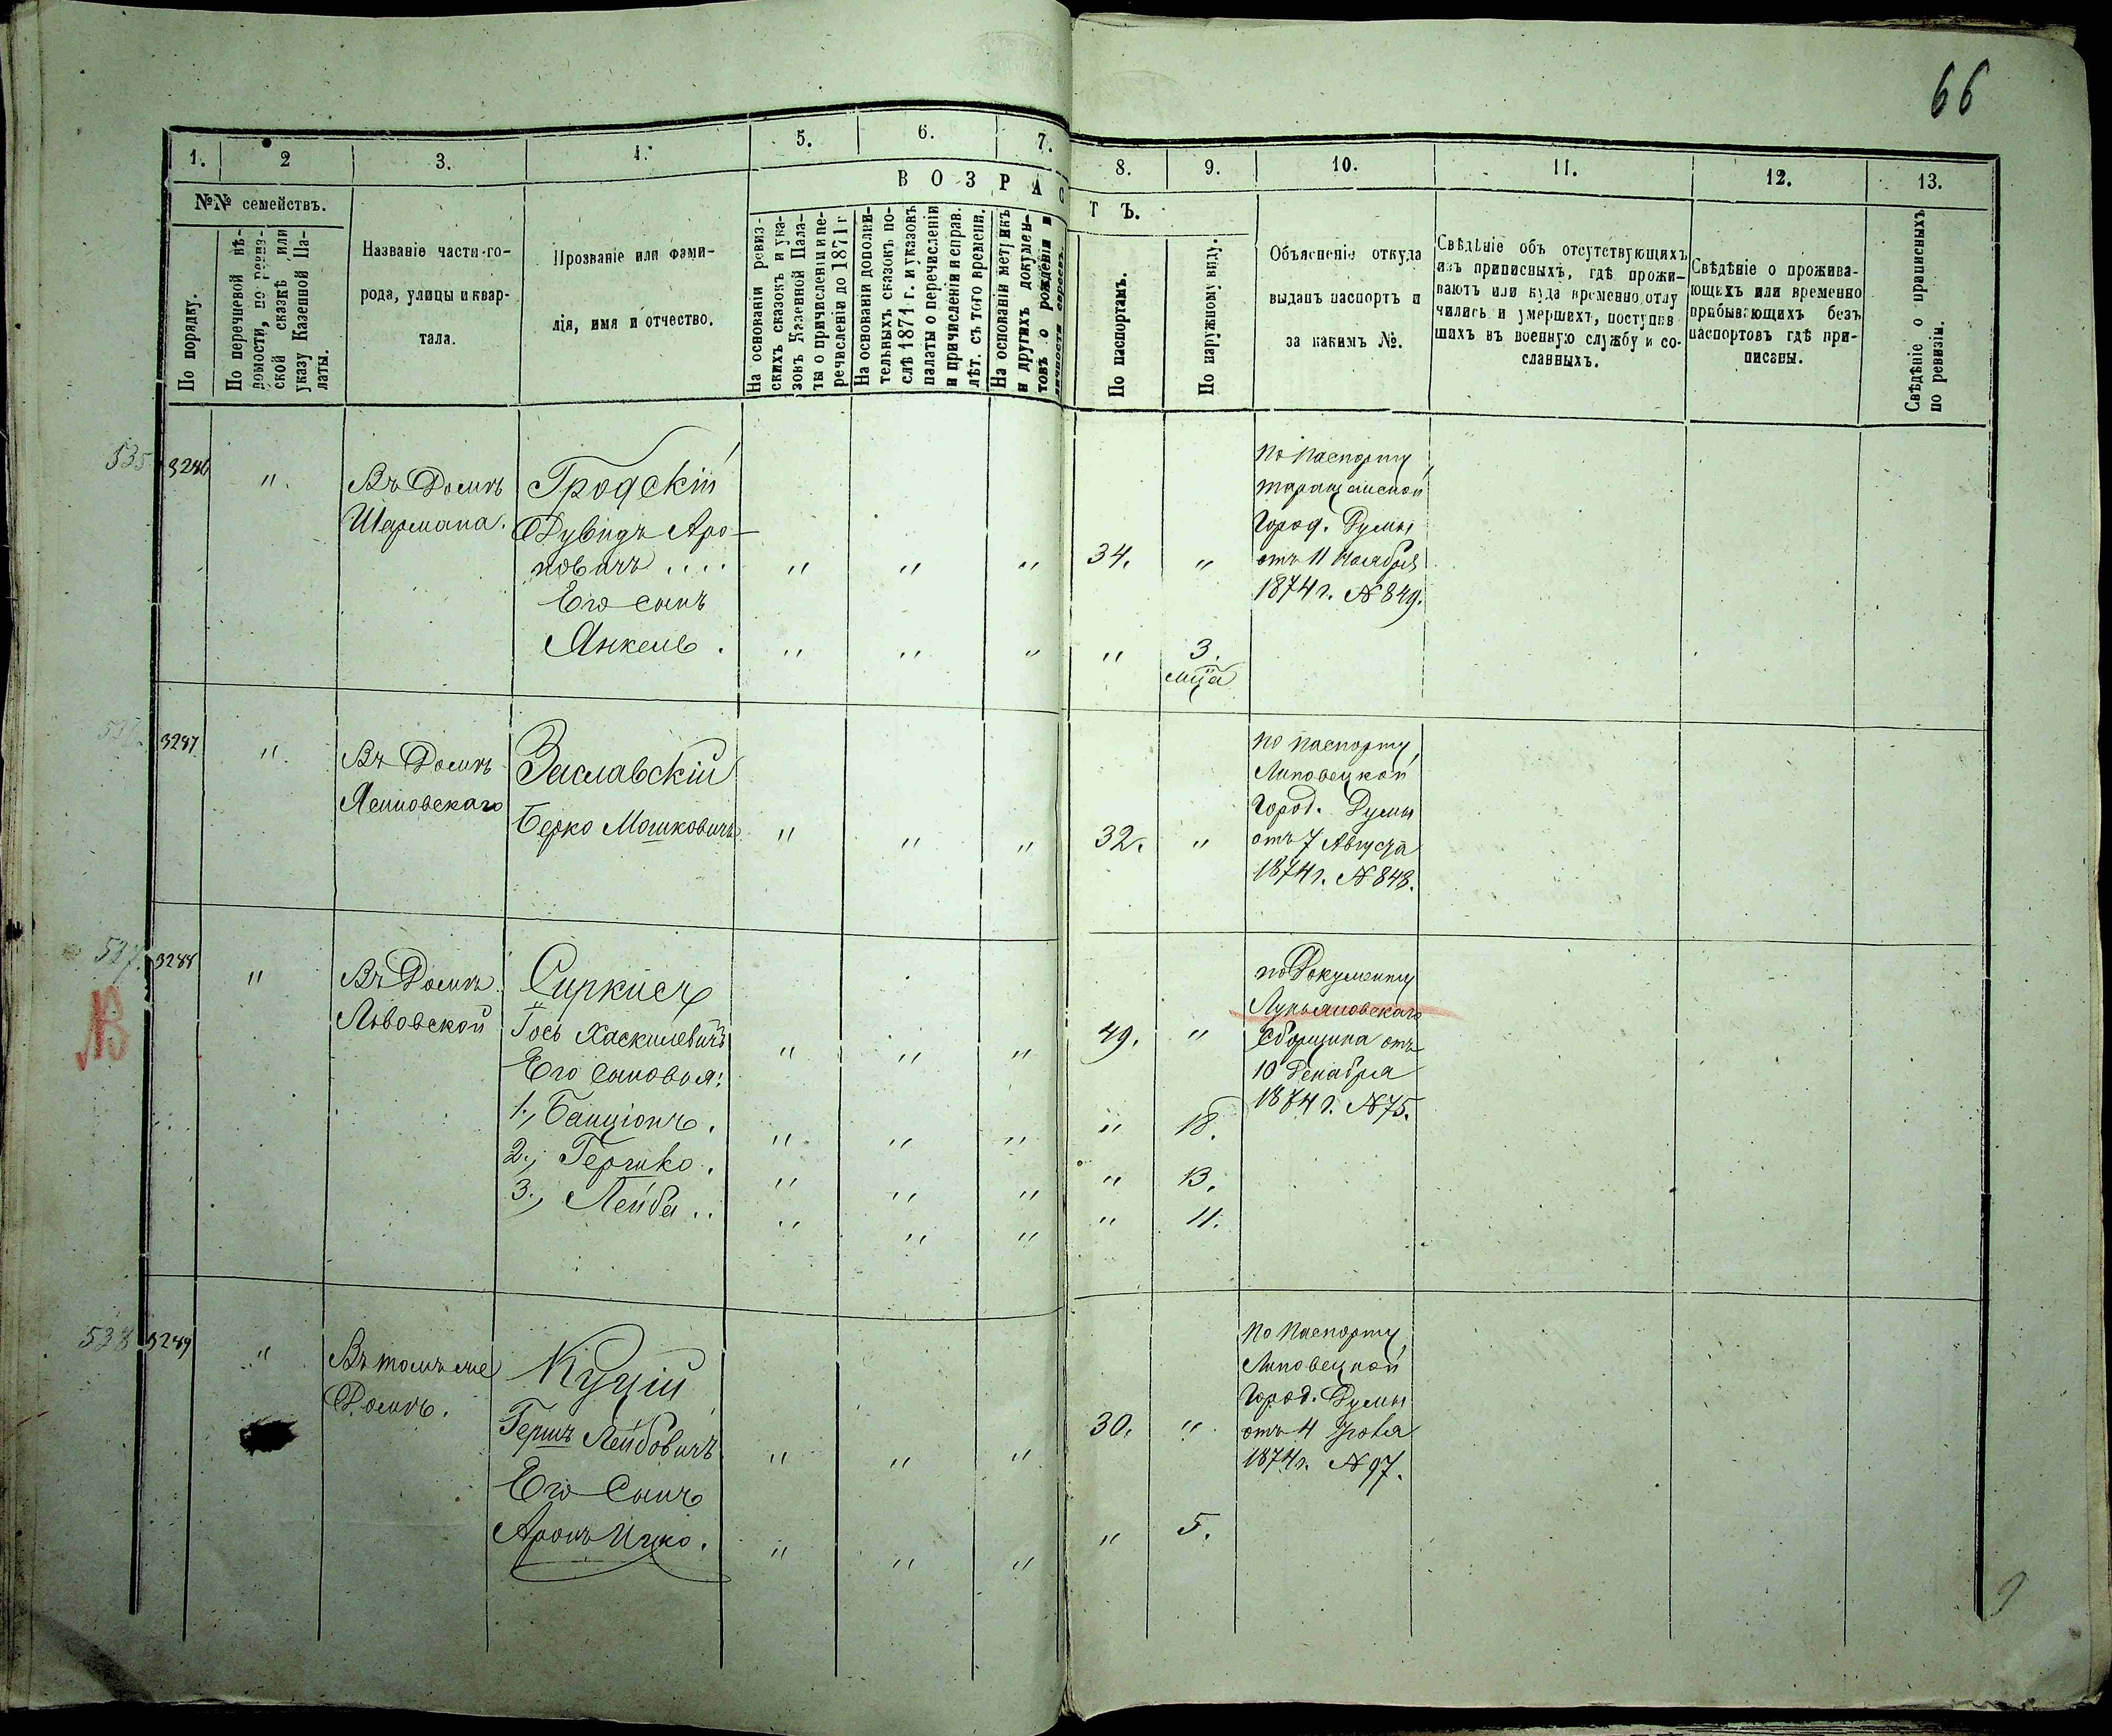 66
1. 2 3. 4. 5. 6. 7. 8. 9. 10. 11. 12. 13.
№№ семействъ.
В О З Р А С Т Ъ.
По порядку.
По перечневой вѣ-
домости, по ревиз-
ской сказкѣ или
указу Казенной Па-
латы.
Названіе части го-
рода, улицы и квар-
тала.
Прозваніе или фами-
лія, имя и отчество.
На основаніи ревиз-
скихъ сказокъ и ука-
зовъ Казенной Пала-
ты о причисленіи и пе-
речисленіи до 1871 г
На основаніи дополни-
тельныхъ сказокъ по-
слѣ 1871 г. и указовъ
палаты о перечисленіи
и причисленіи неправ.
лѣт. съ того времени.
На основаніи метрикъ
и другихъ докумен-
товъ о рожденіи и
личности евреевъ.
По паспортамъ.
По наружному виду.
Объясненіе откуда
выданъ паспортъ и
за какимъ №.
Свѣдѣніе объ отсутствующихъ
изъ приписныхъ, гдѣ прожи-
ваютъ или куда временно отлу
чились и умершихъ, поступив
шихъ въ военную службу и со-
сланныхъ.
Свѣдѣніе о прожива-
ющихъ или временно
прибывающихъ безъ
паспортовъ гдѣ при-
писаны.
Свѣдѣніе о приписныхъ
по ревизіи.
535 3286 " Въ Домѣ
Шармана.
Гродскій
Дувидъ Аро-
новичъ .... " " " 34. "
Его сынъ
Янкель . " " " " 3.
мца
по паспорту
Таращанской
Город. Думы
отъ 11 Ноября
1874 г. № 849.
3287 " Въ Домѣ
Заславскій
Берко Мошковичъ " " " 32. "
по паспорту
Липовецкой
Город. Думы
отъ 7 Августа
1874 г. № 848.
537. 3288 " Въ Домѣ
Львовской
Сиркисъ
Іось Хаскилевичъ " " " 49. "
Его сыновья:
1., Банціонъ . " " " " 18.
2., Гершко . " " " " 13.
3., Лейба .. " " " " 11.
по Документу
Лукьяновскаго
Сборщика отъ
10 Декабря
1874 г. № 75.
538 3289 " Въ томъ же
Домѣ.
Куцій
Гершъ Лейбовичъ " " " 30. "
Его Сынъ
Аронъ Ицко. " " " " 5.
по паспорту
Липовецкой
Город. Думы
1874 г. № 97.